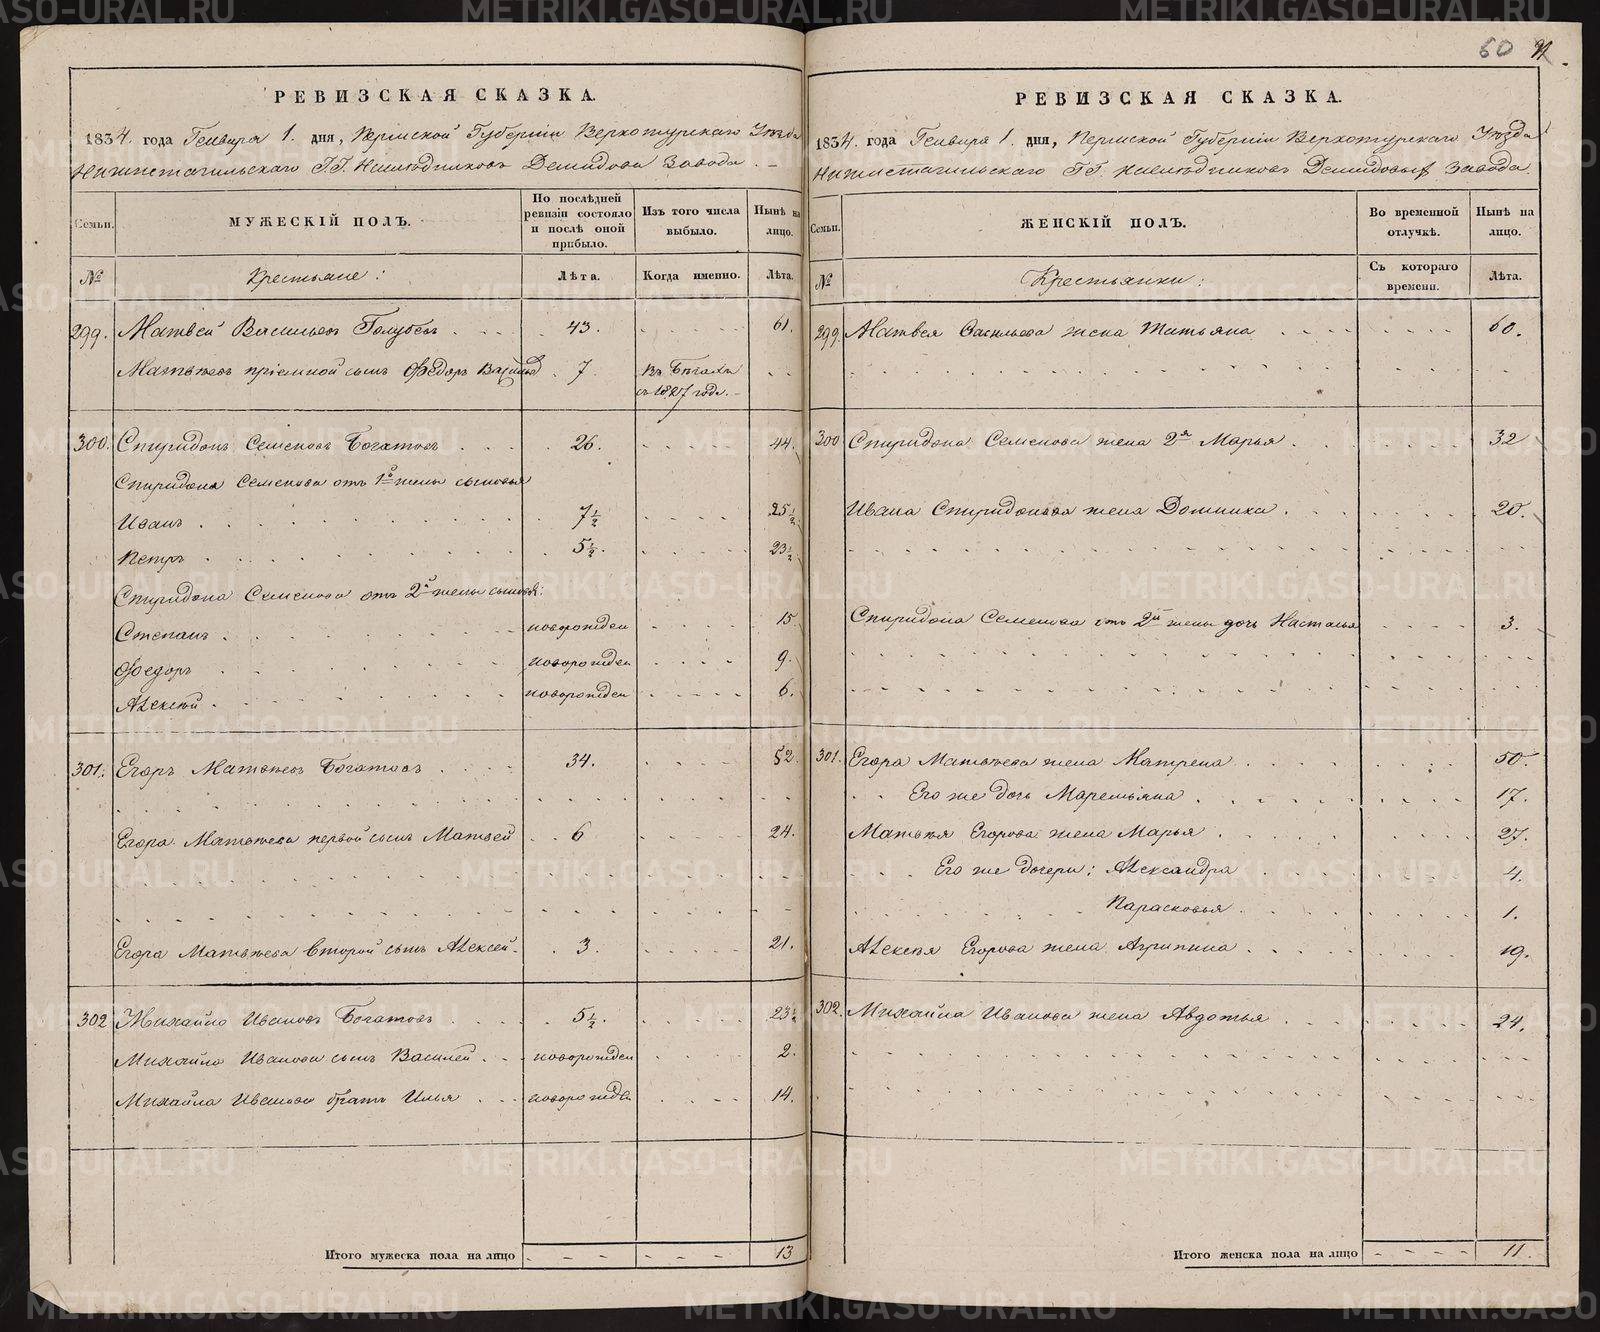 60
РЕВИЗСКАЯ СКАЗКА.
1834. года Генваря 1. дня, Пермской Губернiи Верхотурскаго Уѣзда
Нижнетагильскаго Г.Г. Наслѣдниковъ Демидова Завода.
Семьи. МУЖЕСКIЙ ПОЛЪ. По послѣдней ревизiи состояло и послѣ оной прибыло. Изъ того числа выбыло. Нынѣ на лицо.
№ Крестьяне: Лѣта. Когда именно. Лѣта.
299. Матвей Васильевъ Голубевъ 43. 61.
Матвѣевъ прiемной сынъ Федоръ 7 Въ бѣгахъ съ 1827 года.
300. Спиридонъ Семеновъ Богатовъ 26. 44.
Спиридона Семенова отъ 1й жены сыновья
Иванъ 7½ 25½
Петръ 5½. 23½
Спиридона Семенова отъ 2й жены сыновья:
Степанъ новорожден 15.
Федоръ новорожден 9.
Алексѣй новорожден 6.
301. Егоръ Матвѣевъ Богатовъ 34. 52.
Егора Матвѣева первой сынъ Матвей 6 24.
Егора Матвѣева второй сынъ Алексей 3. 21.
302 Михайло Ивановъ Богатовъ 5½. 23½
Михайло Иванова сынъ Василей новорожден 2.
Михайла Иванова братъ Илья новорожден 14.
Итого мужеска пола на лицо 13
РЕВИЗСКАЯ СКАЗКА.
1834. года Генваря 1. дня, Пермской Губернiи Верхотурскаго Уѣзда
Нижнетагильскаго Г.Г. Наслѣдниковъ Демидовыхъ Завода.
Семьи. ЖЕНСКIЙ ПОЛЪ. Во временной отлучкѣ. Нынѣ на лицо.
№ Крестьянки: Съ котораго времени. Лѣта.
299. Матвея Васильева жена Татьяна 60.
300 Спиридона Семенова жена 2я Марья 32
Ивана Спиридонова жена Домника 20.
Спиридона Семенова отъ 2й жены дочь Настасья 3.
301. Егора Матвѣева жена Матрена 50.
Его же дочь Маремьяна 17.
Матвѣя Егорова жена Марья 27.
Его же дочери: Александра 4.
Парасковья 1.
Алексѣя Егорова жена Агрипина 19.
302. Михайла Иванова жена Авдотья 24.
Итого женска пола на лицо 11.
METRIKI.GASO-URAL.RU